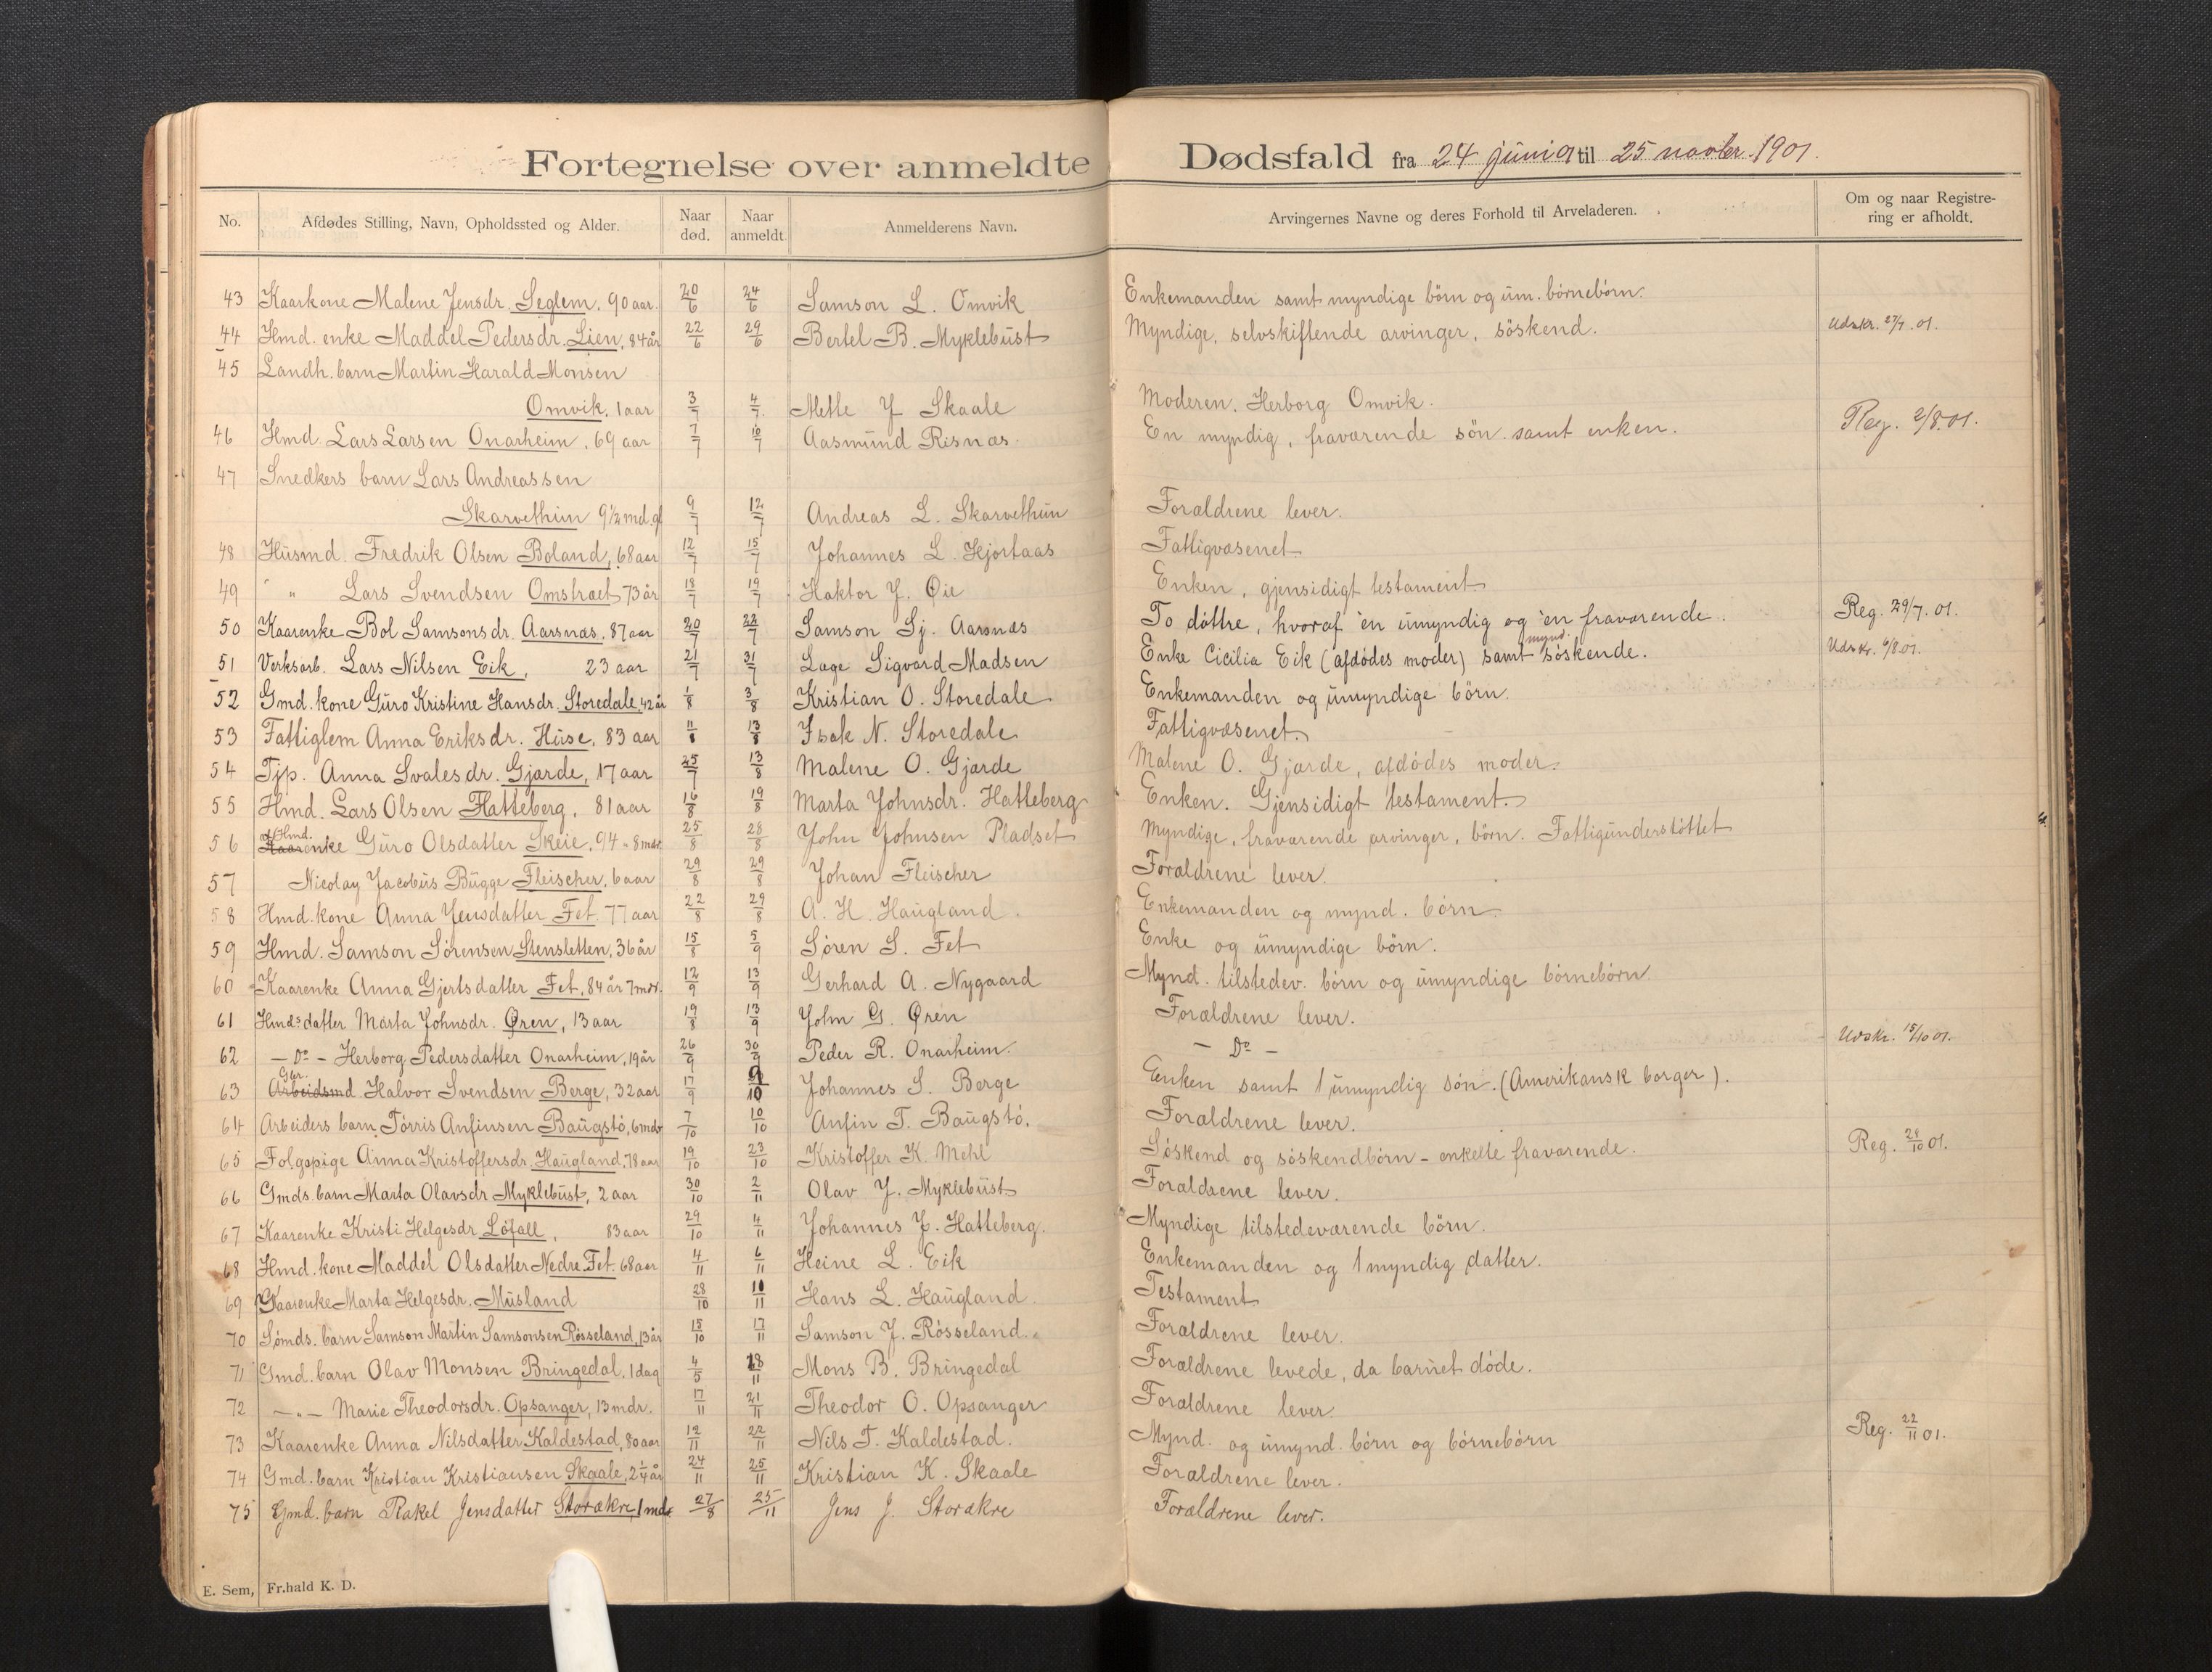 Fortegnelse over anmeldte Dødsfald fra 24 juni 01 til 25 novbr. 1901.
No. Afdødes Stilling, Navn, Opholdssted og Alder. Naar død. Naar anmeldt. Anmelderens Navn. Arvingernes Navne og deres Forhold til Arveladeren. Om og naar Registrering er afholdt.
43 Kaarkone Malene Jensdr. Seglem. 90 aar. 20/6 24/6 Samson L. Omvik Enkemanden samt myndige börn og um. börnebörn.
44 Hmd. enke Maddel Pedersdr. Lien, 84 år 22/6 29/6 Bertel B. Myklebust Myndige, selvskiftende arvinger, söskend. Udskr. 27/7. 01.
45 Landh. barn Martin Harald Monsen
Omvik. 1 aar 3/7 4/7. Mette J Skaale Moderen, Herborg Omvik.
46 Hmd. Lars Larsen Onarheim. 69 aar 7/7 10/7 Aasmund Risnæs. En myndig, fraværende sön samt enken. Reg. 2/8.01.
47 Snedkers barn Lars Andreassen
Skarvethun 9 1/2 md. gl 9/7 12/7 Andreas L. Skarvethun Forældrene lever.
48 Husmd. Fredrik Olsen Boland, 68 aar 12/7 15/7 Johannes L Hjortaas Fattigvæsenet
49 " Lars Svendsen Omstræt 73 år 18/7 19/7 Haktor J. Øie Enken, gjensidigt testament
50 Kaarenke Bol Samsonsdr. Aarsnæs, 87 aar 20/7 22/7 Samson Sj. Aarsnæs To döttre, hvoraf en umyndig og en fraværende. Reg. 29/7. 01.
51 Verksarb. Lars Nilsen Eik, 23 aar 21/7 31/7 Lage Sigvard Madsen Enke Cicilia Eik (afdödes moder) samt mynd. söskende. Udskr. 6/8 01.
52 Gmd. kone Guro Kristine Hansdr. Storedale, 42 år 1/8 3/8 Kristian O. Storedale Enkemanden og umyndige börn.
53 Fattiglem Anna Eriksdr. Huse, 83 aar 11/8 13/8 Isak N. Storedale Fattigvæsenet.
54 Tjp. Anna Svalesdr. Gjærde, 17 aar 25/7 13/8 Malene O. Gjærde Malene O. Gjærde, afdödes moder.
55 Hmd. Lars Olsen Hatteberg, 81 aar 16/8 19/8 Marta Johnsdr. Hatteberg Enken. Gjensidigt testament.
56 Hmd. Kaarenke Guro Olsdatter Skeie, 94 " 8 mdr. 25/8 28/8 John Johnsen Pladset Myndige, fraværende arvinger, börn. Fattigunderstöttet
57 Nicolay Jacobus Bugge Fleischer, 6 aar 29/8 29/8 Johan Fleischer Forældrene lever.
58 Hmd. kone Anna Jensdatter Fet 77 aar 22/8 29/8 A. H. Haugland. Enkemanden og mynd. börn.
59 Hmd. Samson Sörensen Stensletten, 36 år 15/8 5/9 Sören S. Fet Enke og umyndige börn.
60 Kaarenke Anna Gjertsdatter Fet, 84 år 7 mdr. 12/9 13/9 Gerhard A. Nygaard Mynd. tilstedev. börn og umyndige börnebörn.
61 Hmds datter Marta Johnsdr. Øren, 13 aar 19/8 13/9 John G. Øren Forældrene lever.
62 — Do — Herborg Pedersdatter Onarheim, 19 år 26/9 30/9 Peder R. Onarheim. — Do — Udskr. 15/10 01.
63 Gbr. Arbeidsmd. Halvor Svendsen Berge, 32 aar 17/9 9/10 Johannes S. Berge Enken samt 1 umyndig sön. (Amerikansk borger).
64 Arbeiders barn Törris Anfinsen Baugstö, 6 mdr 7/10 10/10 Anfin T. Baugstö. Forældrene lever.
65 Folgspige Anna Kristoffersdr. Haugland, 78 aar 19/10 23/10 Kristoffer K. Mehl Söskend og söskendbörn – enkelte fraværende. Reg. 28/10 01.
66 Gmds. barn Marta Olavsdr Myklebust, 2 aar 30/10 2/11 Olav J. Myklebust Forældrene lever.
67 Kaarenke Kristi Helgesdr Löfall, 83 aar 29/10 4/11 Johannes J. Hatteberg. Myndige tilstedeværende börn.
68 Hmd. kone Maddel Olsdatter Nedre Fet. 68 aar 4/11 6/11 Heine L. Eik Enkemanden og 1 myndig datter.
69 Kaarenke Marta Helgesdr. Musland 28/10 10/11 Hans L. Haugland Testament
70 Sömds. barn Samson Martin Samsonsen Rösseland, 13 år 15/10 17/11 Samson J. Rösseland. Forældrene lever.
71 Gmd. barn Olav Monsen Bringedal, 1 dag 4/5 18/11 Mons B. Bringedal Forældrene levede, da barnet döde.
72 — " — Marie Theodorsdr. Opsanger, 13 mdr. 17/11 21/11 Theodor O. Opsanger Forældrene lever.
73 Kaarenke Anna Nilsdatter Kaldestad, 80 aar 12/11 22/11 Nils T. Kaldestad. Mynd. og umynd. börn og börnebörn Reg. 22/11 01.
74 Gmd. barn Kristian Kristiansen Skaale, 2 1/4 år 24/11 25/11 Kristian K. Skaale Forældrene lever.
75 Gmd. barn Rakel Jensdatter Storakre, 1 mdr 27/8 25/11 Jens J. Storakre Forældrene lever.
E. Sem, Fr.hald K. D.